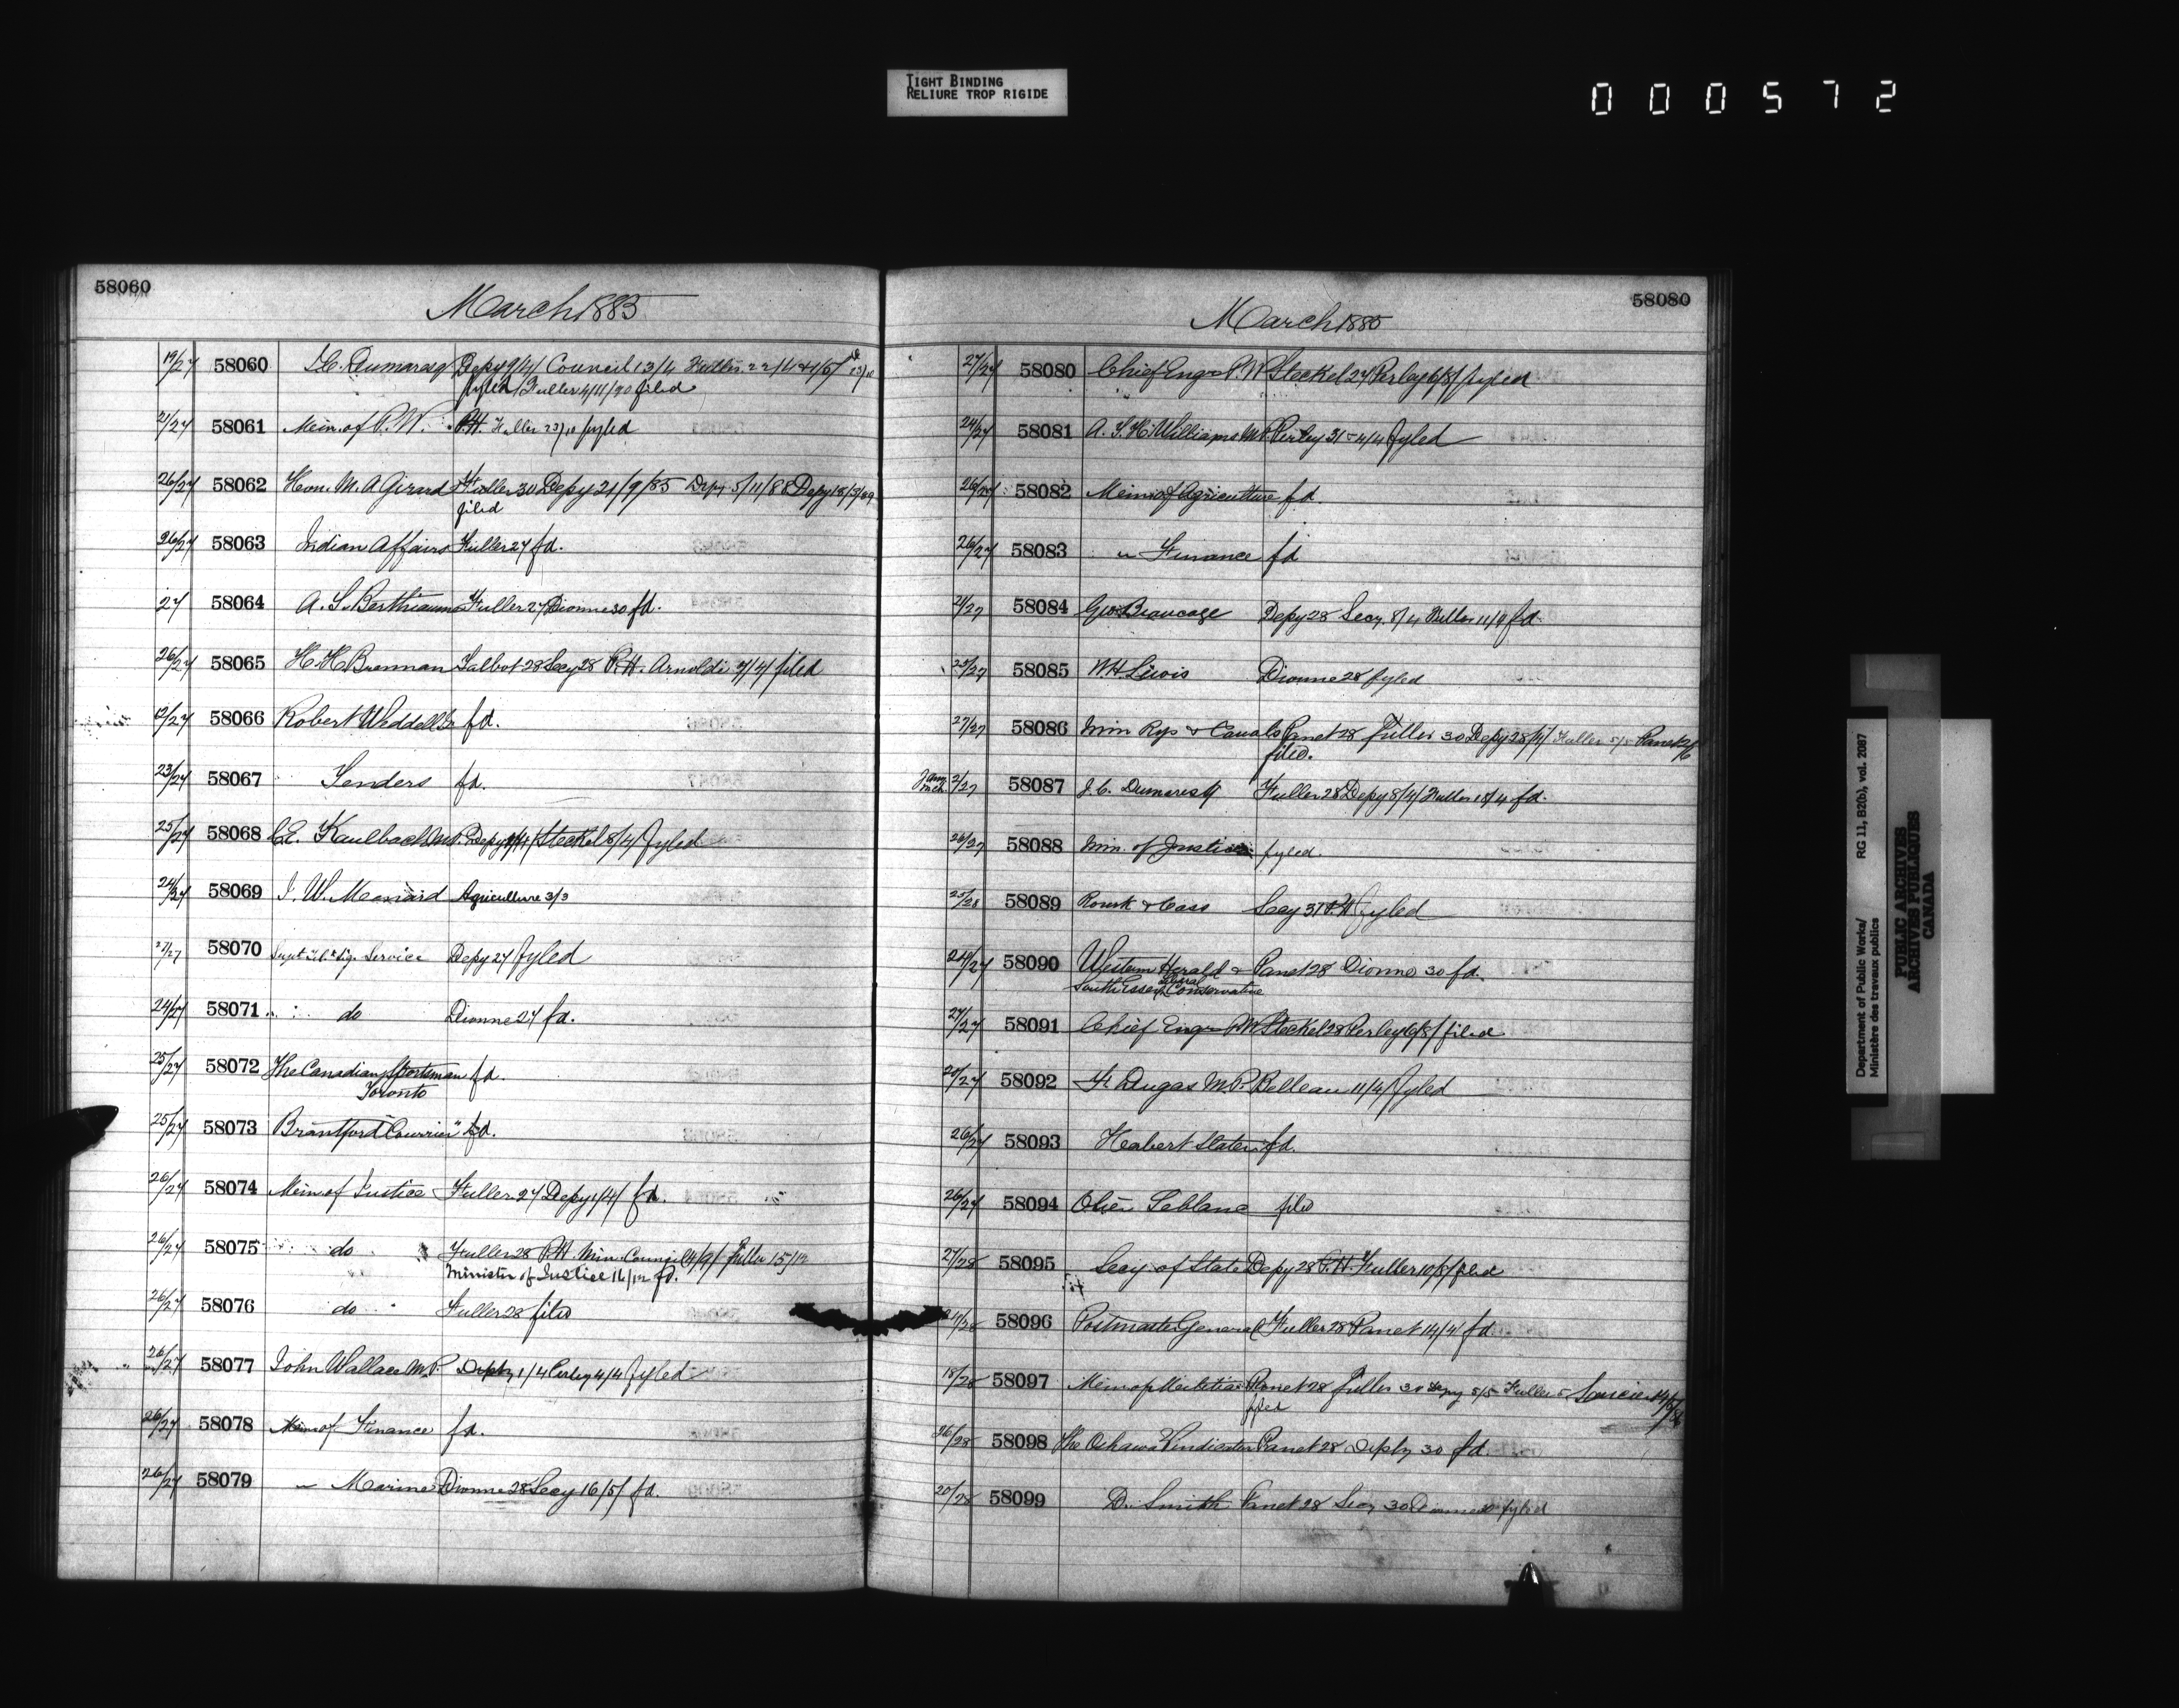 TIGHT BINDING
RELIURE TROP RIGIDE
000572
58060
March 1885
19/27 58060 Depy 9/4/ Council 13/4
fyled / Fuller 4/11/90 filed
21/27 58061 Min. of P.W. P.H. Fuller 23/10 fyled
26/27 58062 Hon. M. A Girard Fuller 30 Depy 21/9/85 Depy 5/11/88 Depy
filed
26/27 58063 Indian Affairs Fuller 27 fd.
27 58064 A. S. Berthiaume Fuller 27 Dionne 30 fd.
26/27 58065 H. H Brennan Talbot 28 Secy 28 P.H. Arnoldi 7/4/ filed
58066 Robert Weddell fd.
23/27 58067 Tenders fd.
25/27 58068 C.E. Kaulbach M.P. Depy Steckel 8/4/ fyled
24/27 58069 J. W. Agriculture 3/3
27/27 58070 Supt Tel & Sig. Service Depy 27 fyled
24/27 58071 " do Dionne 27 fd.
25/27 58072 The Canadian Sportsman fd.
Toronto
25/27 58073 Brantford "Courrier" fd.
26/27 58074 Min. of Justice Fuller 27 Depy 1/4/ fd.
26/27 58075 do Fuller 28 P.H. Min. Council Fuller 15/12
Minister of Justice 16/12 fd.
26/27 58076 do Fuller 28 filed
26/27 58077 John Wallace M.P. Depty 1/4 Perley 4/4 fyled
26/27 58078 Min of Finance fd.
26/27 58079 " Marine Dionne 28 Secy 16/5/ fd.
58080
March 1885
27/27 58080 Chief Engr P.W Steckel 27 Perley 6/8/ fyled
24/27 58081 A. T. H. Williams M.P. Perley 31 - 4/4 fyled
26/27 58082 Min of Agriculture fd.
26/27 58083 " Finance fd
21/27 58084 Geo Beaucage Depy 28 Secy. 8/4 fd.
25/27 58085 W.H. Lewis Dionne 28 fyled
27/27 58086 Min Rys & Canals Panet 28 Fuller 30 Depy 28/4/ Fuller 5/5 Panet
filed.
2/27 58087 J.C. Dumaresq Fuller 28 Depy 8/4/ Fuller 18/4 fd.
26/27 58088 Min. of Justice fyled.
25/28 58089 Rourk & Cass Secy 31 P.H fyled
24/27 58090 Western Herald & Panet 28 Dionne 30 fd.
South Essex Liberal Conservative
27/27 58091 Chief Engr P.W Steckel 28 Perley 6/8/ filed
20/27 58092 F. Dugas M.P. Belleau 11/4/ fyled
26/27 58093 Herbert Slater fd.
26/27 58094 Leblanc filed
27/28 58095 Secy of State Depy 28 P.H. Fuller 10/8/ filed
58096 Postmaster General Fuller 28 Panet 14/4/ fd
18/28 58097 Min of Militia Panet 28 Fuller 30 Depy 5/5 Fuller
filed
26/28 58098 The Oshawa Vindicator Panet 28 Depty 30 fd.
20/28 58099 D. Smith Panet 28 Secy 30 Dionne 30 fyled
Department of Public Works/ RG 11, B2(b), vol. 2087
Ministère des travaux publics
PUBLIC ARCHIVES
ARCHIVES PUBLIQUES
CANADA